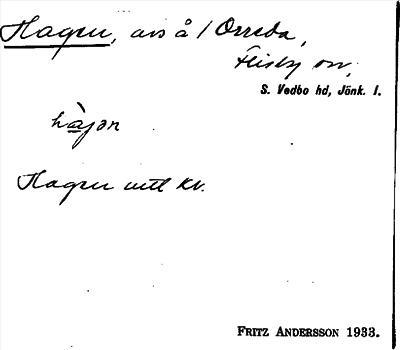 Hagen, avs å / Orreda,
Flisby sn,
S. Vedbo hd, Jönk. l.
hàjɘn
Hagen intill kv.
FRITZ ANDERSSON 1933.